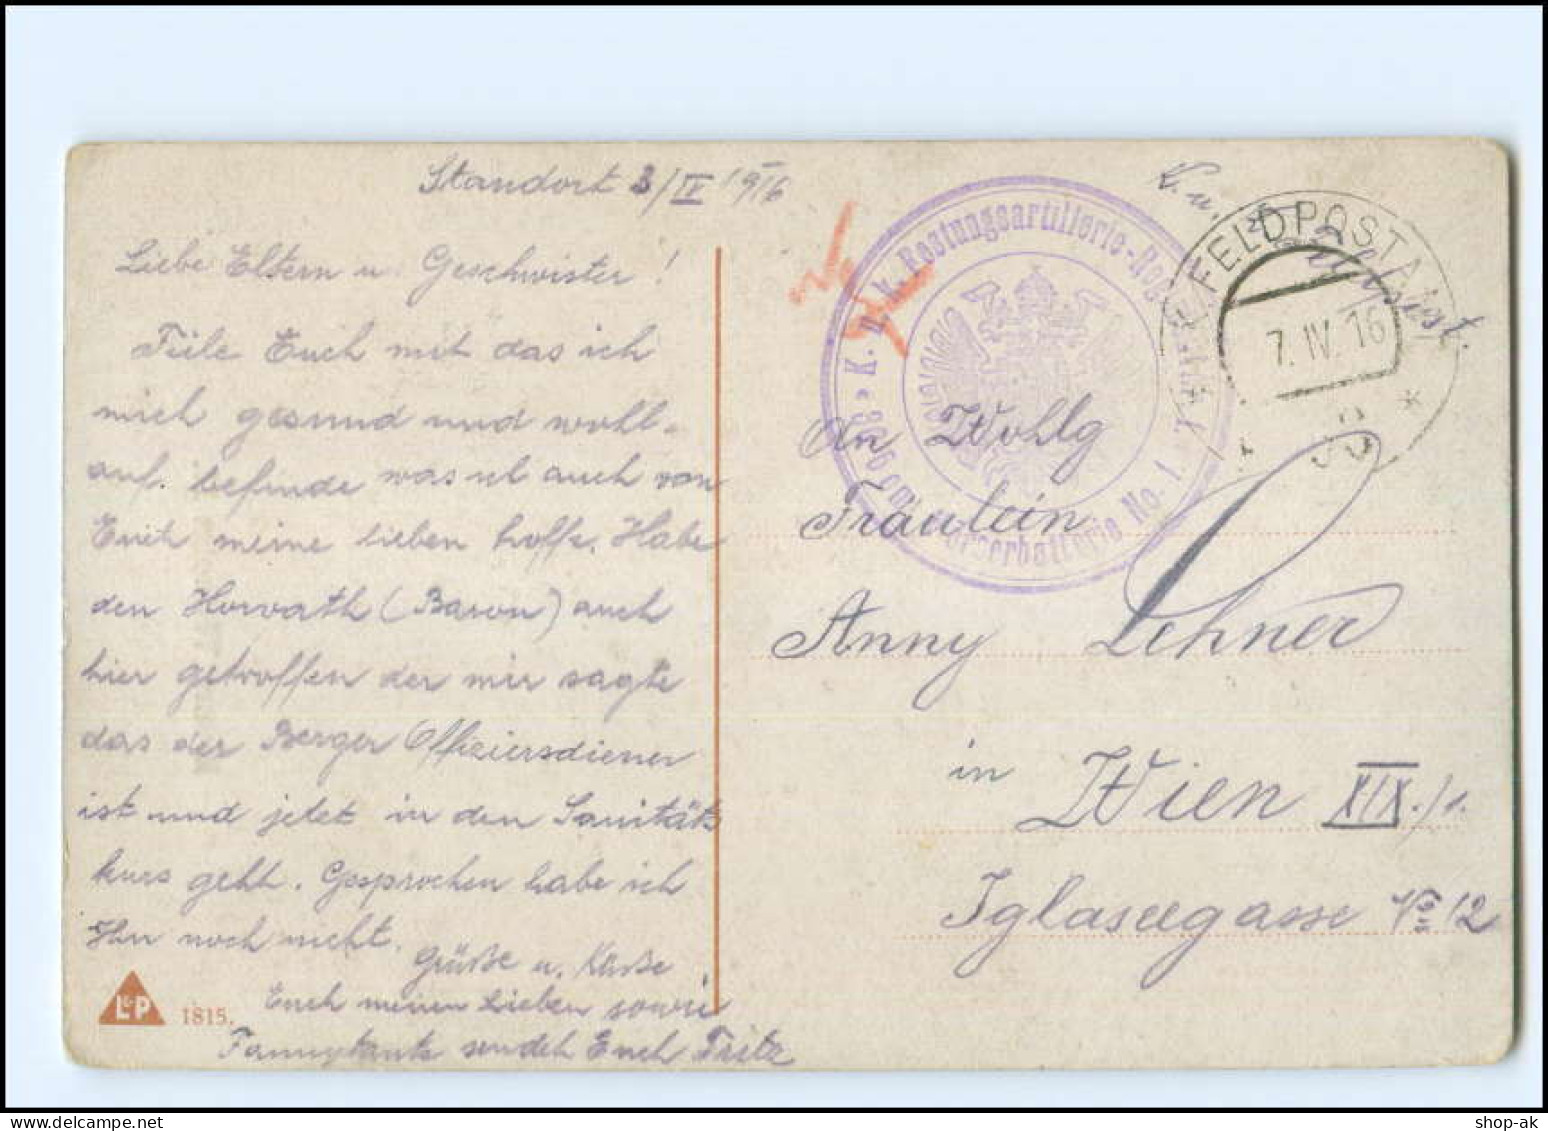 Standort 3/IV 1916
Liebe Eltern u. Geschwister!
Teile Euch mit das ich
mich gesund und wohl-
auf. befinde was ich auch von
Euch meine lieben hoffe. Habe
den Horvath (Baron) auch
hier getroffen der mir sagte
das der Berger Offiziersdiener
ist und jetzt in den Sanitäts
kurs geht. Gesprochen habe ich
Ihn noch nicht.
Grüße u. Küsse
Euch meinen Lieben sowie
Fannytante sendet Euch Fritz
L&P 1815.
K. u. K. Feldpost.
K. u. k. Festungsartillerie-Reg
30.5 cm Mörserbatterie No. 1
FELDPOSTAMT
7. IV. 16
An Wohlg
Fräulein
Anny Lehner
in Wien XIX./1.
Iglaseegasse No 12
shop-ak